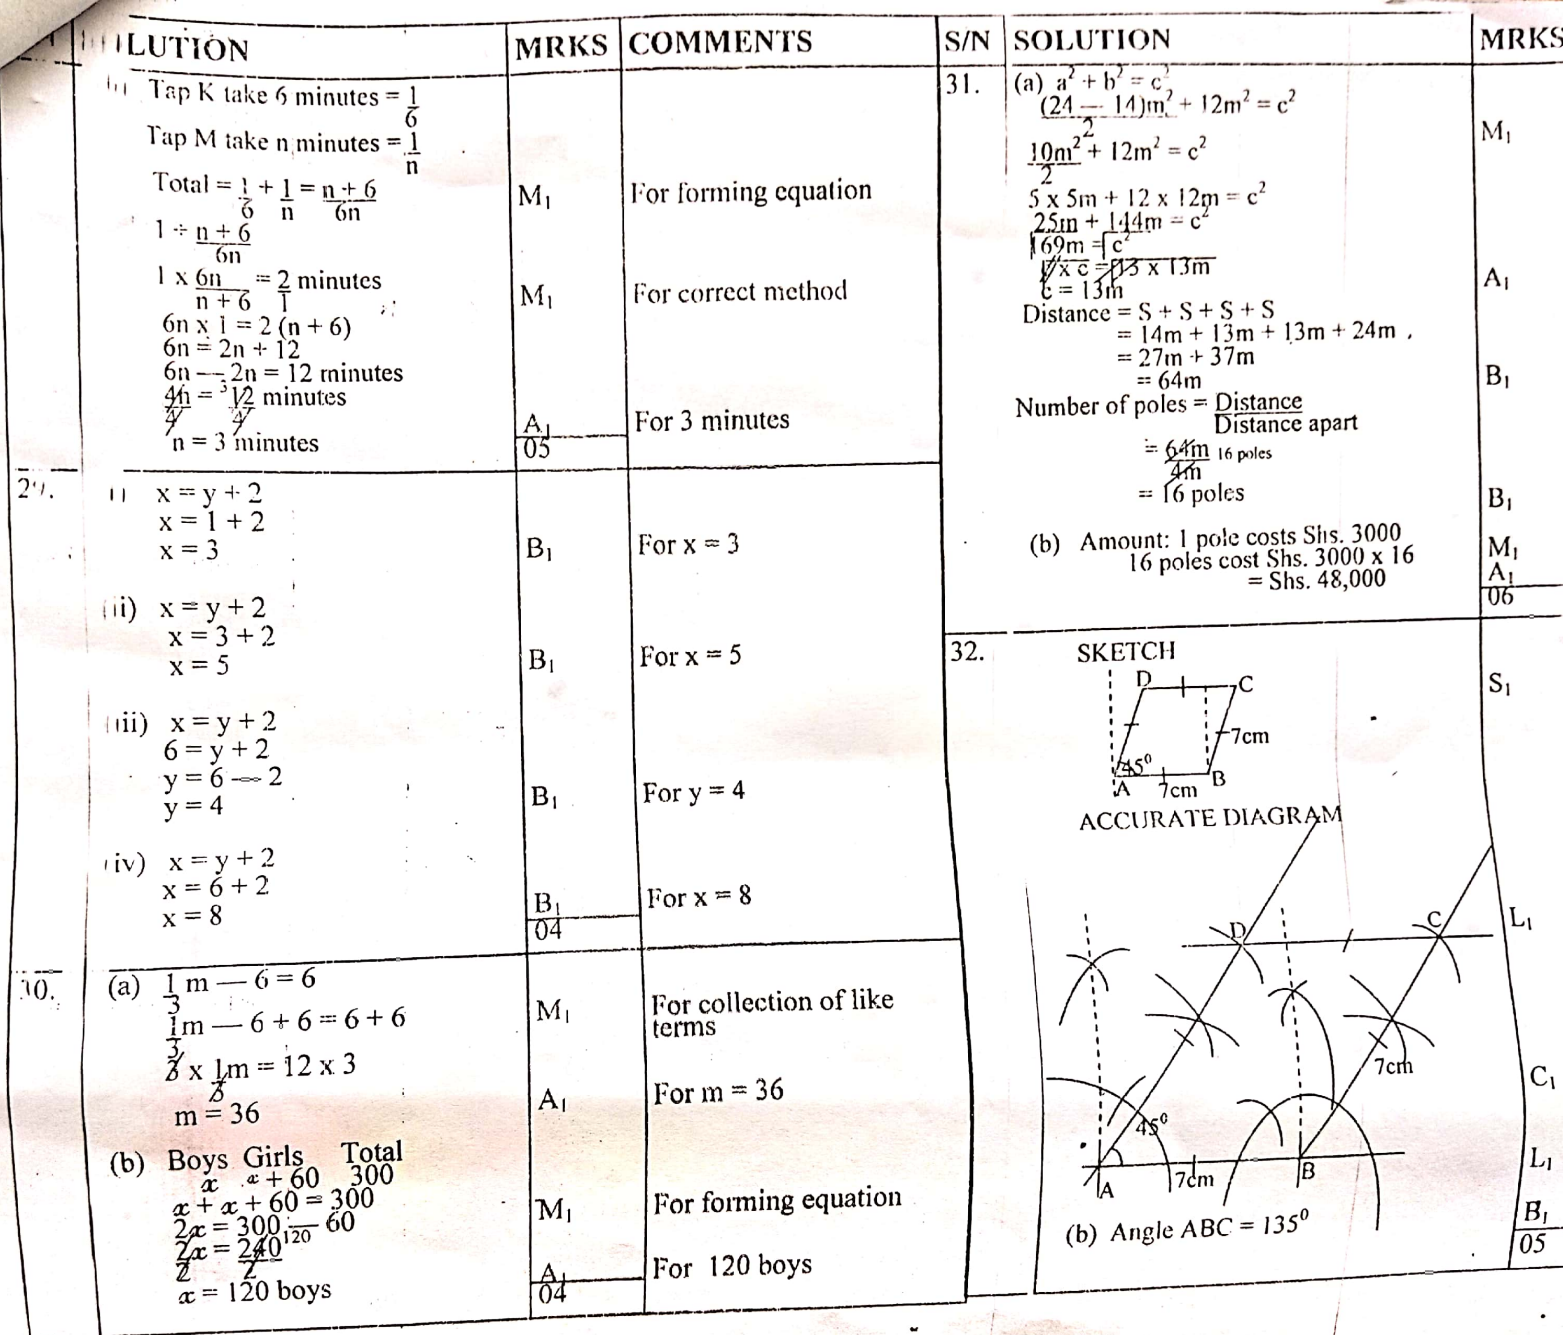 LUTION MRKS COMMENTS
Tap K take 6 minutes = 1/6
Tap M take n minutes = 1/n
Total = 1/6 + 1/n = n + 6/6n M1 For forming equation
1 ÷ n + 6/6n
1 x 6n/n + 6 = 2/1 minutes M1 For correct method
6n x 1 = 2 (n + 6)
6n = 2n + 12
6n — 2n = 12 minutes
4n/4 = 3 12/4 minutes
n = 3 minutes A1 For 3 minutes
05
29. x = y + 2
x = 1 + 2
x = 3 B1 For x = 3
(ii) x = y + 2
x = 3 + 2
x = 5 B1 For x = 5
(iii) x = y + 2
6 = y + 2
y = 6 — 2
y = 4 B1 For y = 4
(iv) x = y + 2
x = 6 + 2
x = 8 B1 For x = 8
04
30. (a) 1/3 m — 6 = 6
1/3 m — 6 + 6 = 6 + 6 M1 For collection of like
terms
3 x 1/3 m = 12 x 3
m = 36 A1 For m = 36
(b) Boys Girls Total
x x + 60 300
x + x + 60 = 300 M1 For forming equation
2x = 300 — 60
2x/2 = 240/2 120
x = 120 boys A1 For 120 boys
04
S/N SOLUTION MRKS
31. (a) a² + b² = c²
(24 — 14)m²/2 + 12m² = c² M1
10m²/2 + 12m² = c²
5 x 5m + 12 x 12m = c²
25m + 144m = c²
√169m = √c²
√c x c = √13 x 13m
c = 13m A1
Distance = S + S + S + S
= 14m + 13m + 13m + 24m
= 27m + 37m
= 64m B1
Number of poles = Distance/Distance apart
= 64m/4m 16 poles
= 16 poles B1
(b) Amount: 1 pole costs Shs. 3000
16 poles cost Shs. 3000 x 16 M1
= Shs. 48,000 A1
06
32. SKETCH
S1
D C
7cm
45⁰
A 7cm B
ACCURATE DIAGRAM
D C L1
7cm C1
45⁰
A 7cm B L1
(b) Angle ABC = 135⁰ B1
05